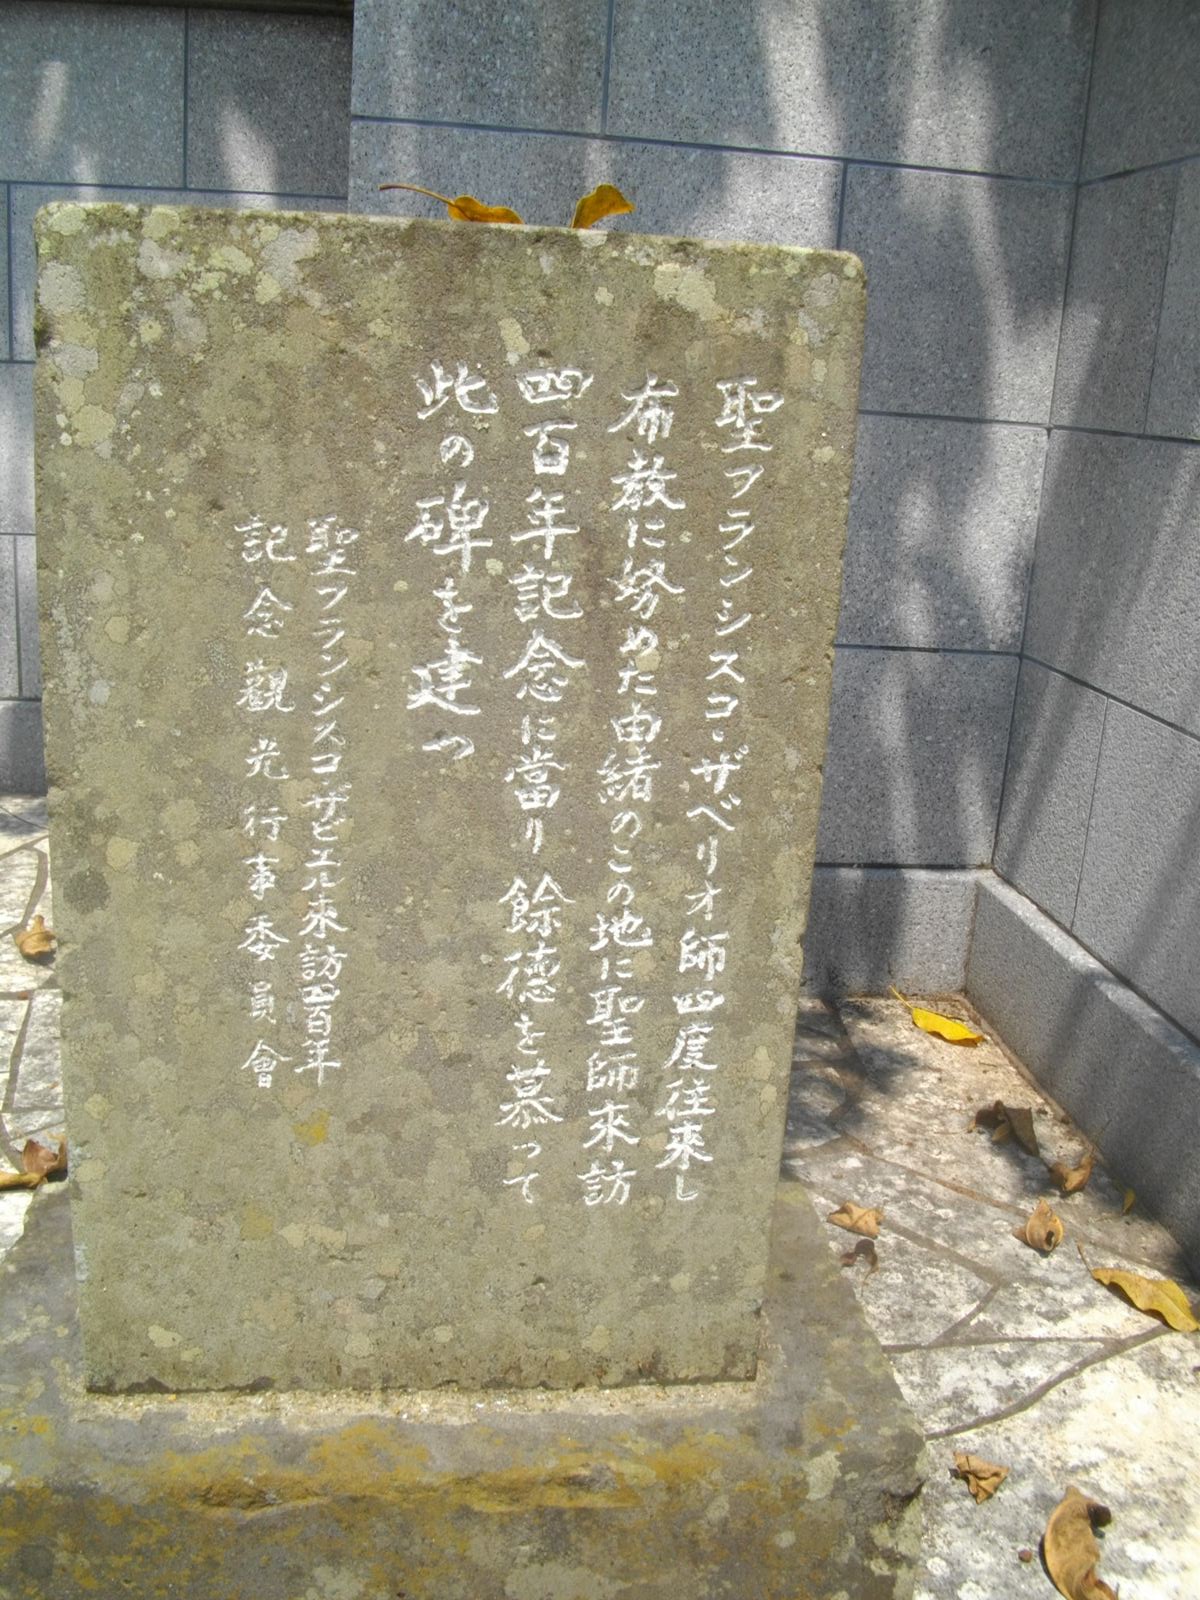 聖フランシスコ・ザベリオ師四度往来し
布教に努めた由緒のこの地に聖師來訪
四百年記念に當り餘徳を慕って
此の碑を建つ
聖フランシスコ・ザビエル来訪四百年
記念觀光行事委員會